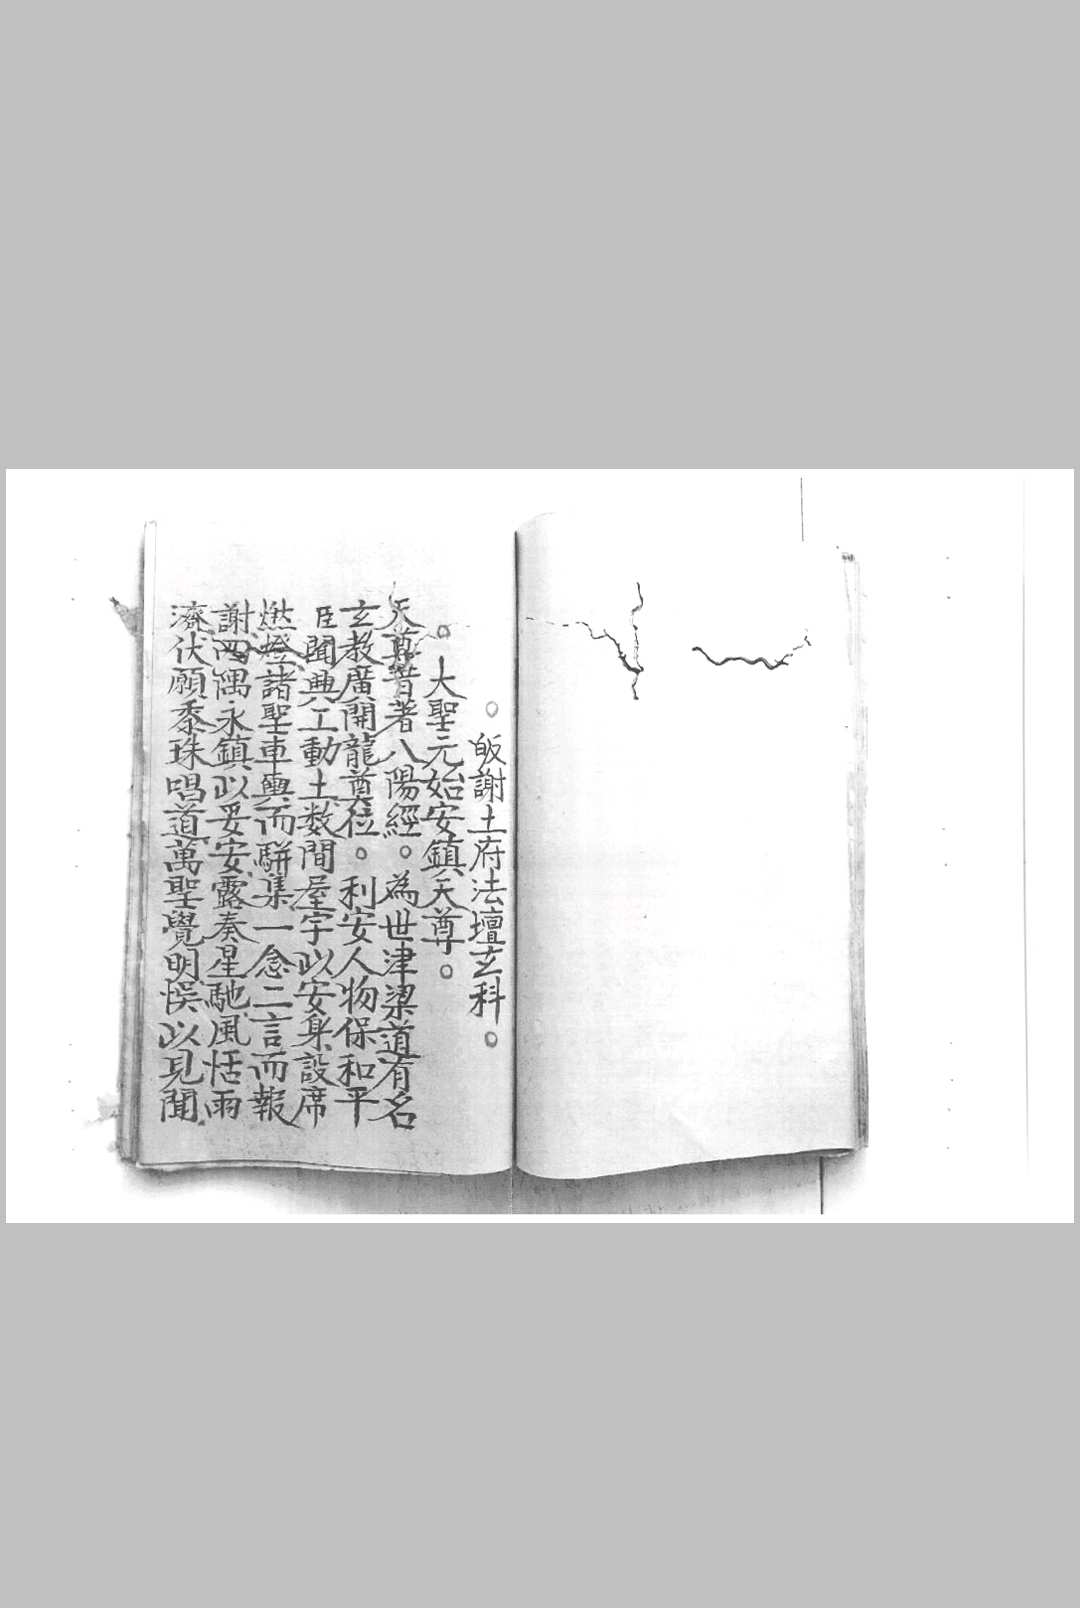 ○皈謝土府法壇玄科○
○大聖元始安鎮天尊○
天尊普著八陽經○為世津梁道有名
玄教廣開龍尊位○利安人物保和平
臣聞興工動土数間屋宇以安身設席
燃燈諸聖車輿而駢集一念二言而報
謝四隅永鎮以妥安露奏星馳風恬雨
濟伏願黍珠唱道萬聖覺明悞以見聞